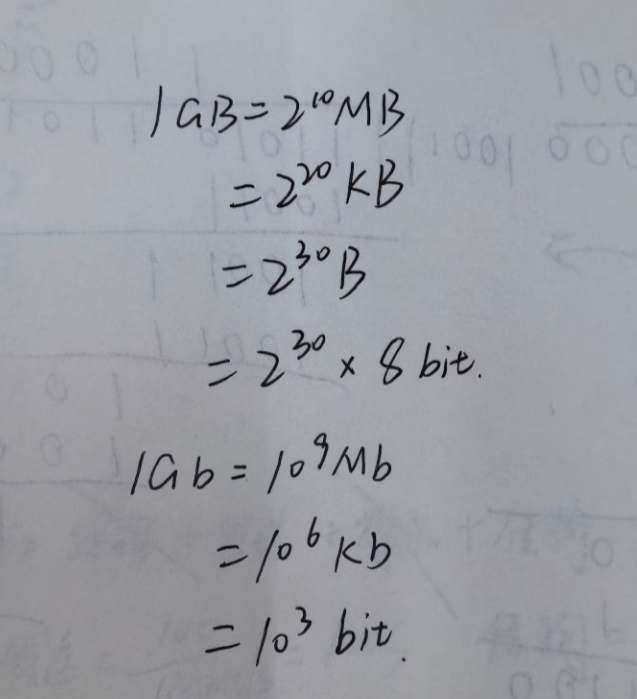 1GB=2¹⁰MB
=2²⁰KB
=2³⁰B
=2³⁰×8bit.
1Gb=10⁹Mb
=10⁶Kb
=10³bit.